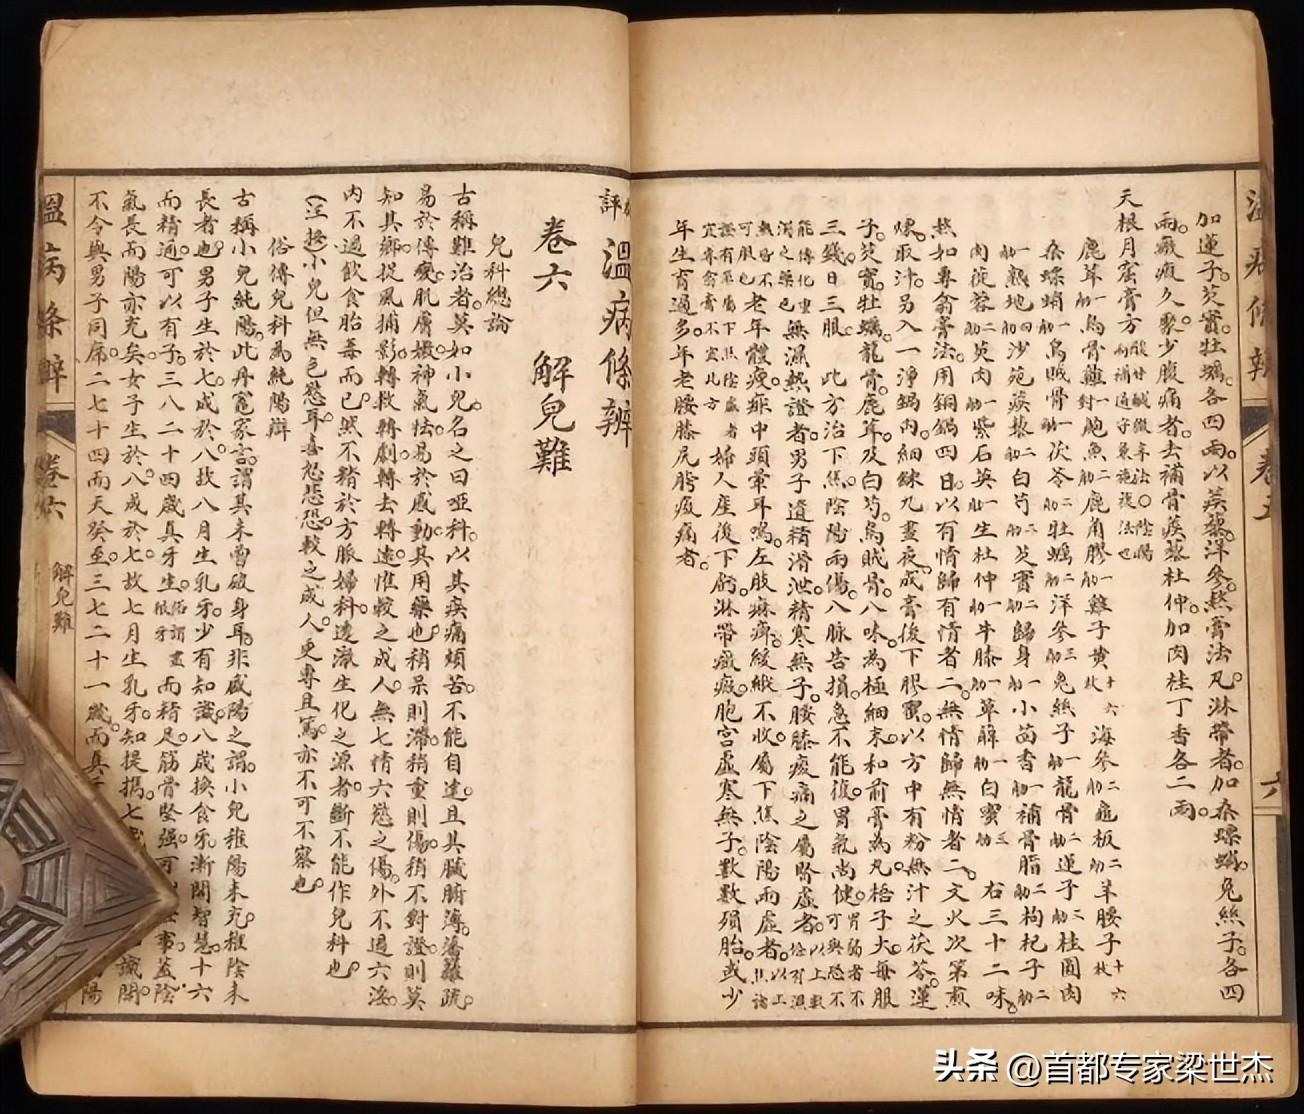 加蓮子。芡實。牡蠣。各四兩。以蒺藜。洋參。熬膏法。凡淋帶者。加桑螵蛸。兔絲子。各四
兩。癥瘕久聚。少腹痛者。去補骨蒺藜杜仲。加肉桂丁香各二兩。
天根月窟膏方 酸甘鹹微辛法○陰陽兩補通守兼施複法也
鹿茸一觔烏骨雞一對鮑魚二觔鹿角膠一觔雞子黃十六枚海參二觔龜板二觔羊腰子十六枚
桑螵蛸一觔烏賊骨一觔茯苓二觔牡蠣二觔洋參三觔兔絲子一觔龍骨二觔蓮子三觔桂圓肉
一觔熟地四觔沙苑蒺藜二觔白芍二觔芡實二觔歸身一觔小茴香一觔補骨脂二觔枸杞子二觔
肉蓯蓉二觔萸肉一觔紫石英一觔生杜仲一觔牛膝一觔萆薢一觔白蜜三觔 右三十二味。
熬如專翕膏法。用銅鍋四口。以有情歸有情者二。無情歸無情者二。文火次第煎
煉取汁。另入一淨鍋內。細鍊九晝夜。成膏。後下膠蜜。以方中有粉無汁之茯苓。蓮
子。芡實。牡蠣。龍骨。鹿茸及白芍。烏賊骨。八味。為極細末。和前膏為丸梧子大。每服
三錢。日三服。 此方治下焦陰陽兩傷。八脈告損。急不能復。胃氣尚健。胃弱者不可與恐不
能傳化重濁之藥也無濕熱證者。男子遺精滑泄。精寒無子。腰膝痠痛之屬腎虛者。以上數條有濕
熱皆不可服也老年體瘦。痱中。頭暈耳鳴。左肢麻痺。緩縱不收。屬下焦陰陽兩虛者。以上諸
證有單屬下焦陰虛者宜專翕膏不宜此方婦人產後下虧。淋帶癥瘕。胞宮虛寒無子。數數殞胎。或少
年生育過多。年老腰膝尻胯痠痛者。
評溫病條辨
卷六 解兒難
兒科總論
古稱難治者。莫如小兒。名之曰啞科。以其疾痛煩苦。不能自達。且其臟腑薄。藩籬疏。
易於傳變。肌膚嫩。神氣怯。易於感動。其用藥也。稍呆則滯。稍重則傷。稍不對證。則莫
知其鄉。捉風捕影。轉救轉劇。轉去轉遠。惟較之成人。無七情六慾之傷。外不過六淫。
內不過飲食胎毒而已。然不精於方脈婦科。透澈生化之源者。斷不能作兒科也。
(汪按)小兒但無色慾耳。喜怒悲恐。較之成人。更專且篤。亦不可不察也。
俗傳兒科為純陽辯
古稱小兒純陽。此丹竈家言。謂其未曾破身耳。非盛陽之謂。小兒稚陽未充。稚陰未
長者也。男子生於七。成於八。故八月生乳牙。少有知識。八歲換食牙。漸開智慧。十六
而精通。可以有子。三八二十四歲真牙生。俗謂盡根牙而精足。筋骨堅强。可
事。蓋陰
氣長而陽亦充矣。女子生於八。成於七。故七月生乳牙。知提攜。七歲
識開。
不令與男子同席。二七十四而天癸至。三七二十一歲。而真
陽
溫病條辨
卷六
解兒難
卷五
六
头条 @首都专家梁世杰